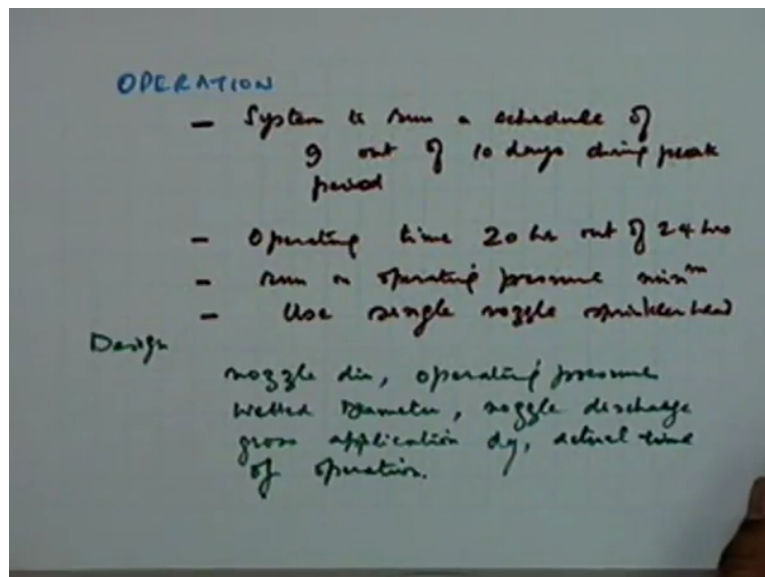 OPERATION
— System to run a schedule of
9 out of 10 days during peak
period
— Operating time 20 hrs out of 24 hrs
— run on operating pressure min^m
— Use single nozzle sprinkler head
Design
nozzle dia, operating pressure
Wetted Diameter, nozzle discharge
gross application d, actual time
of operation.